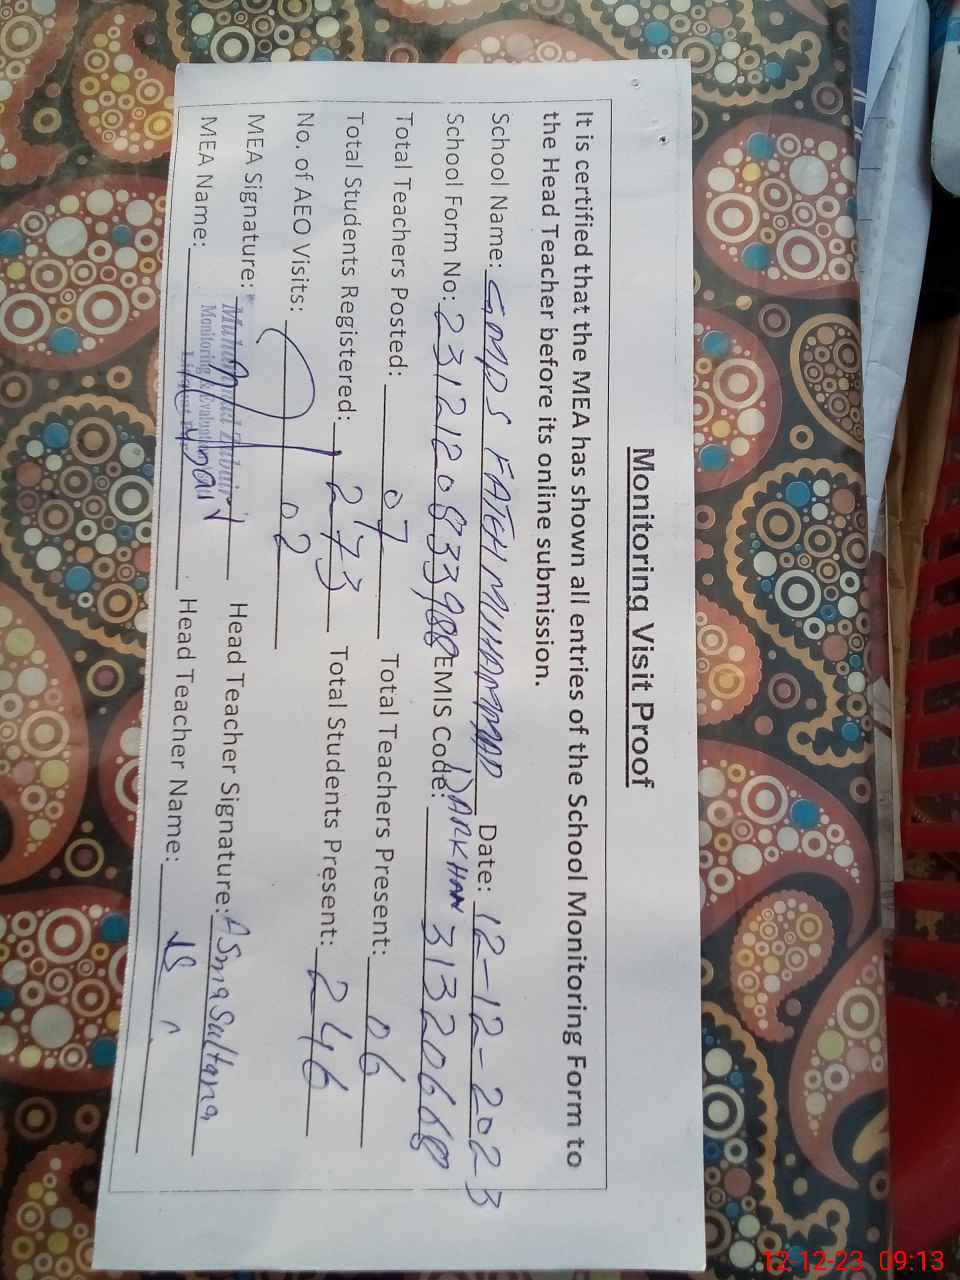 Monitoring Visit Proof
It is certified that the MEA has shown all entries of the School Monitoring Form to
the Head Teacher before its online submission.
School Name: GMPS FATEH MUHAMMAD Date: 12-12-2023
DARKHAN
School Form No: 23121208339 EMIS Code: 31320668
Total Teachers Posted: 07 Total Teachers Present: 06
Total Students Registered: 273 Total Students Present: 246
No. of AEO Visits: 02
MEA Signature: Head Teacher Signature: Asma Sultana
Muhammad
Monitoring & Evaluation
MEA Name: Head Teacher Name:
12-12-23 09:13